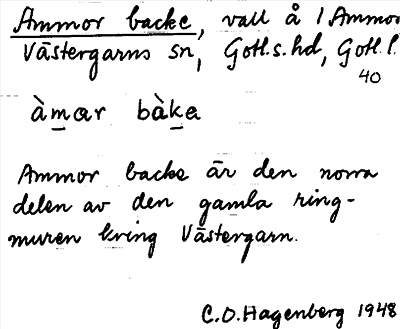 Ammor backe, vall å / Ammor
Västergarns sn, Gotl.s.hd, Gotl.l.
40
àmar bàke
Ammor backe är den norra
delen av den gamla ring-
muren kring Västergarn.
C.O. Hagenberg 1948